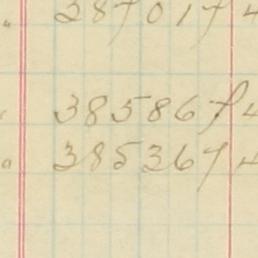 " 287017 4
" 385867 4
" 385367 4